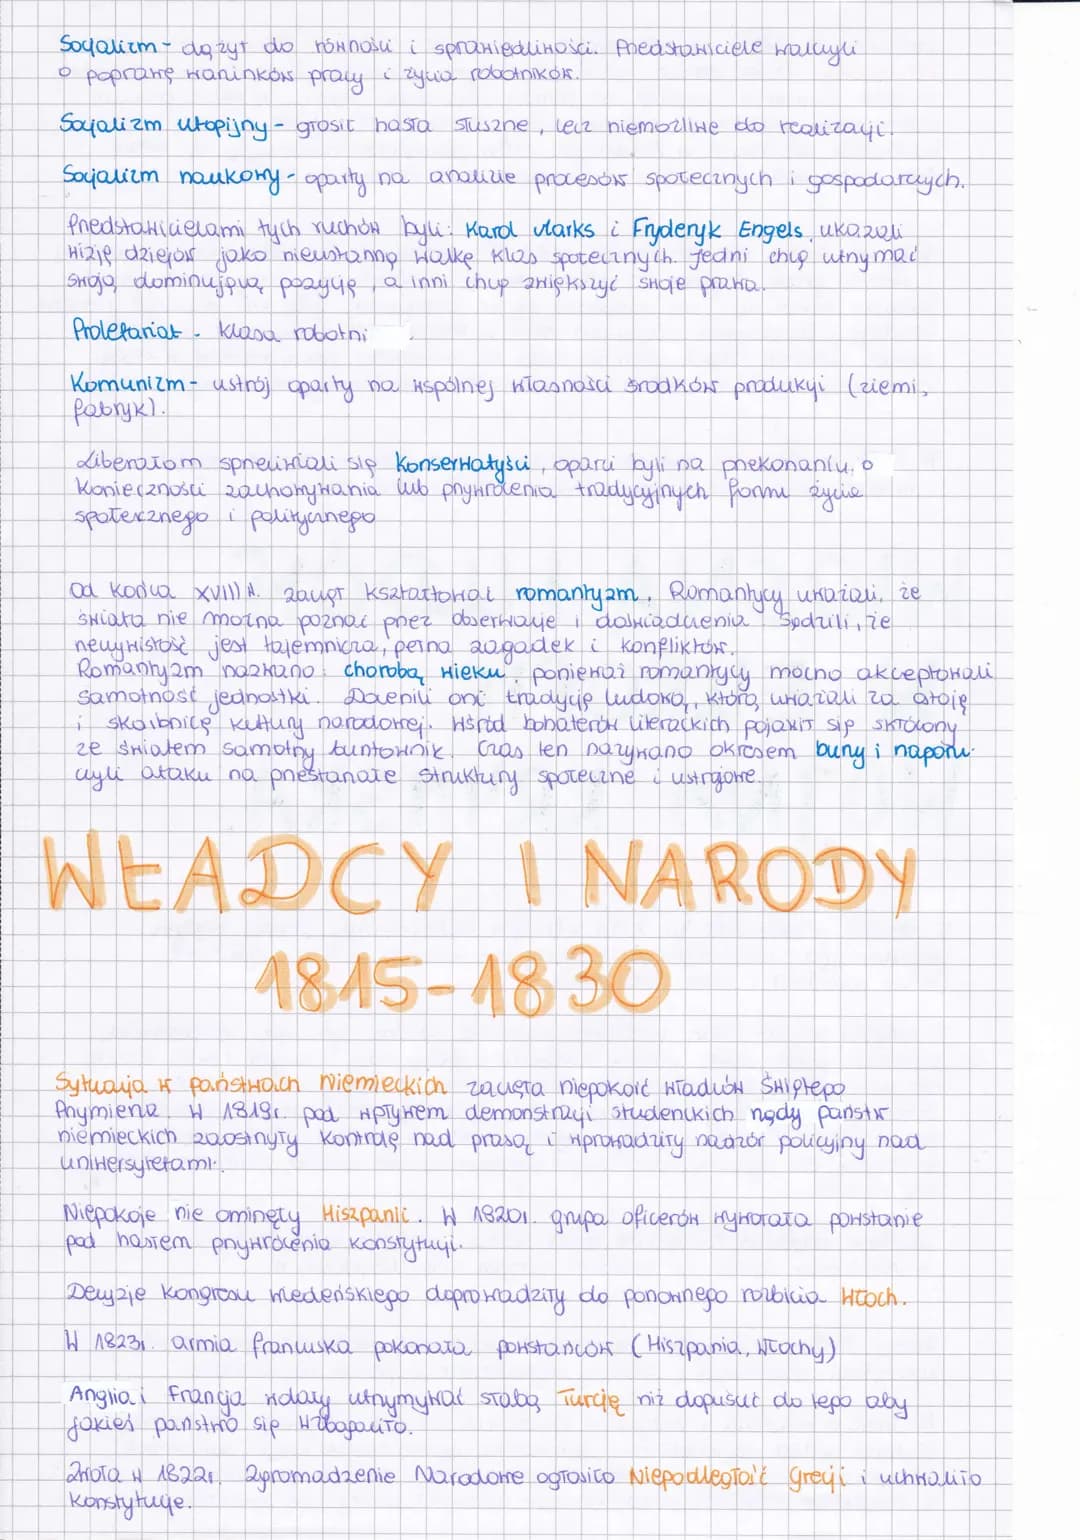 Socjalizm - dążył do równości i sprawiedliwości. Przedstawiciele walczyli
o poprawę waninków pracy i życia robotników.
Socjalizm utopijny - głosił hasła słuszne, lecz niemożliwe do realizacji.
Socjalizm naukowy - oparty na analizie procesów społecznych i gospodarczych.
Przedstawicielami tych ruchów byli: Karol Marks i Fryderyk Engels, ukazali
wizję dziejów jako nieustanną walkę klas społecznych. Jedni chcą utrzymać
swoją dominującą pozycję, a inni chcą zwiększyć swoje prawa.
Proletariat - klasa robotni
Komunizm - ustrój oparty na wspólnej własności środków produkcji (ziemi,
fabryk).
Liberałom sprzeciwiali się konserwatyści, oparci byli na przekonaniu, o
konieczności zachowywania lub przywrócenia tradycyjnych form życia
społecznego i politycznego
Od końca XVIII w. zaczął kształtował romantyzm. Romantycy uważali, że
świata nie można poznać przez obserwacje i doświadczenia. Sądzili, że
rzeczywistość jest tajemnicza, pełna zagadek i konfliktów.
Romantyzm nazwano: chorobą wieku, ponieważ romantycy mocno akceptowali
samotność jednostki. Docenili oni tradycję ludową, którą uważali za ostoję
i skarbnicę kultury narodowej. Wśród bohaterów literackich pojawił się skłócony
ze światem samotny buntownik. Czas ten nazywano okresem burzy i naporu
czyli ataku na przestarzałe struktury społeczne i ustrojowe.
WŁADCY I NARODY
1815-1830
Sytuacja w państwach niemieckich zaczęła niepokoić władców Świętego
Przymierza. W 1819r. pod wpływem demonstracji studenckich rządy państw
niemieckich zaostrzyły kontrolę nad prasą i wprowadziły nadzór policyjny nad
uniwersytetami.
Niepokoje nie ominęły Hiszpanii. W 1820r. grupa oficerów wywołała powstanie
pod hasłem przywrócenia konstytucji.
Decyzje kongresu wiedeńskiego doprowadziły do ponownego rozbicia Włoch.
W 1823r. armia francuska pokonała powstańców (Hiszpania, Włochy)
Anglia i Francja wolały utrzymywać słabą Turcję niż dopuścić do tego aby
jakieś państwo się wzbogaciło.
Zwoła w 1822r. Zgromadzenie Narodowe ogłosiło Niepodległość Grecji i uchwaliło
konstytucje.